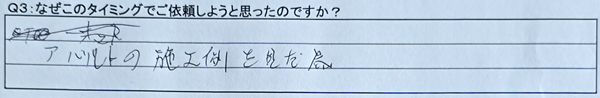 Q3:なぜこのタイミングでご依頼しようと思ったのですか？
の施工例を見た為